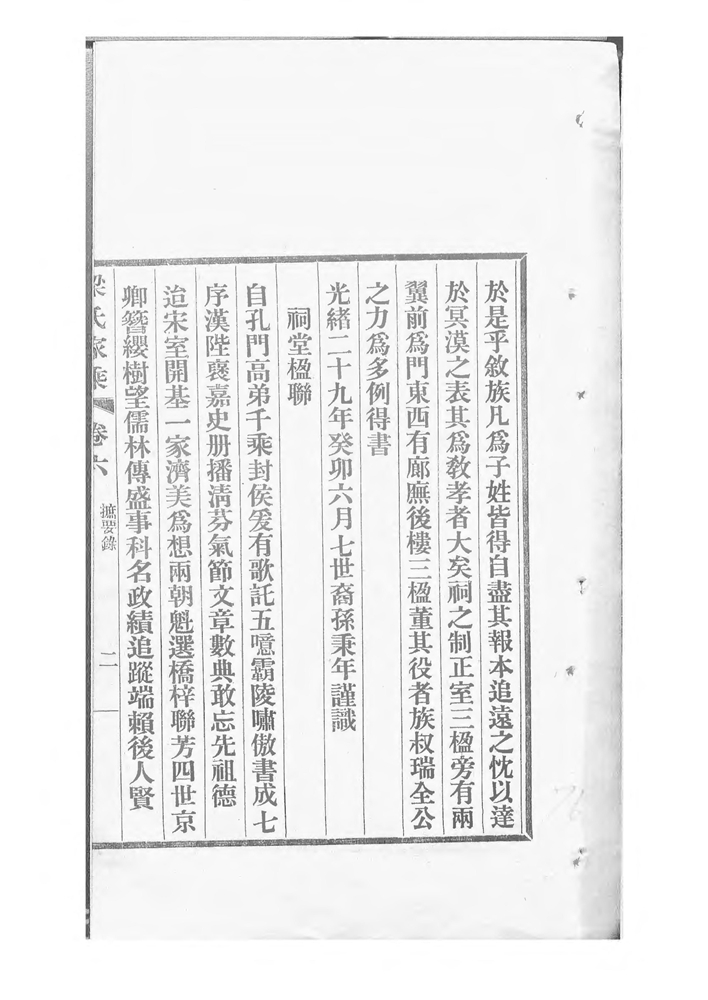 於是乎敘族凡爲子姓皆得自盡其報本追遠之忱以達
於冥漠之表其爲敎孝者大矣祠之制正室三楹旁有兩
翼前爲門東西有廊廡後樓三楹董其役者族叔瑞全公
之力爲多例得書
光緒二十九年癸卯六月七世裔孫秉年謹識
祠堂楹聯
自孔門高弟千乘封侯爰有歌託五噫霸陵嘯傲書成七
序漢陛襃嘉史册播淸芬氣節文章數典敢忘先祖德
迨宋室開基一家濟美爲想兩朝魁選橋梓聯芳四世京
卿簪纓樹望儒林傳盛事科名政績追蹤端賴後人賢
梁氏家乘
卷六
摭要錄
二